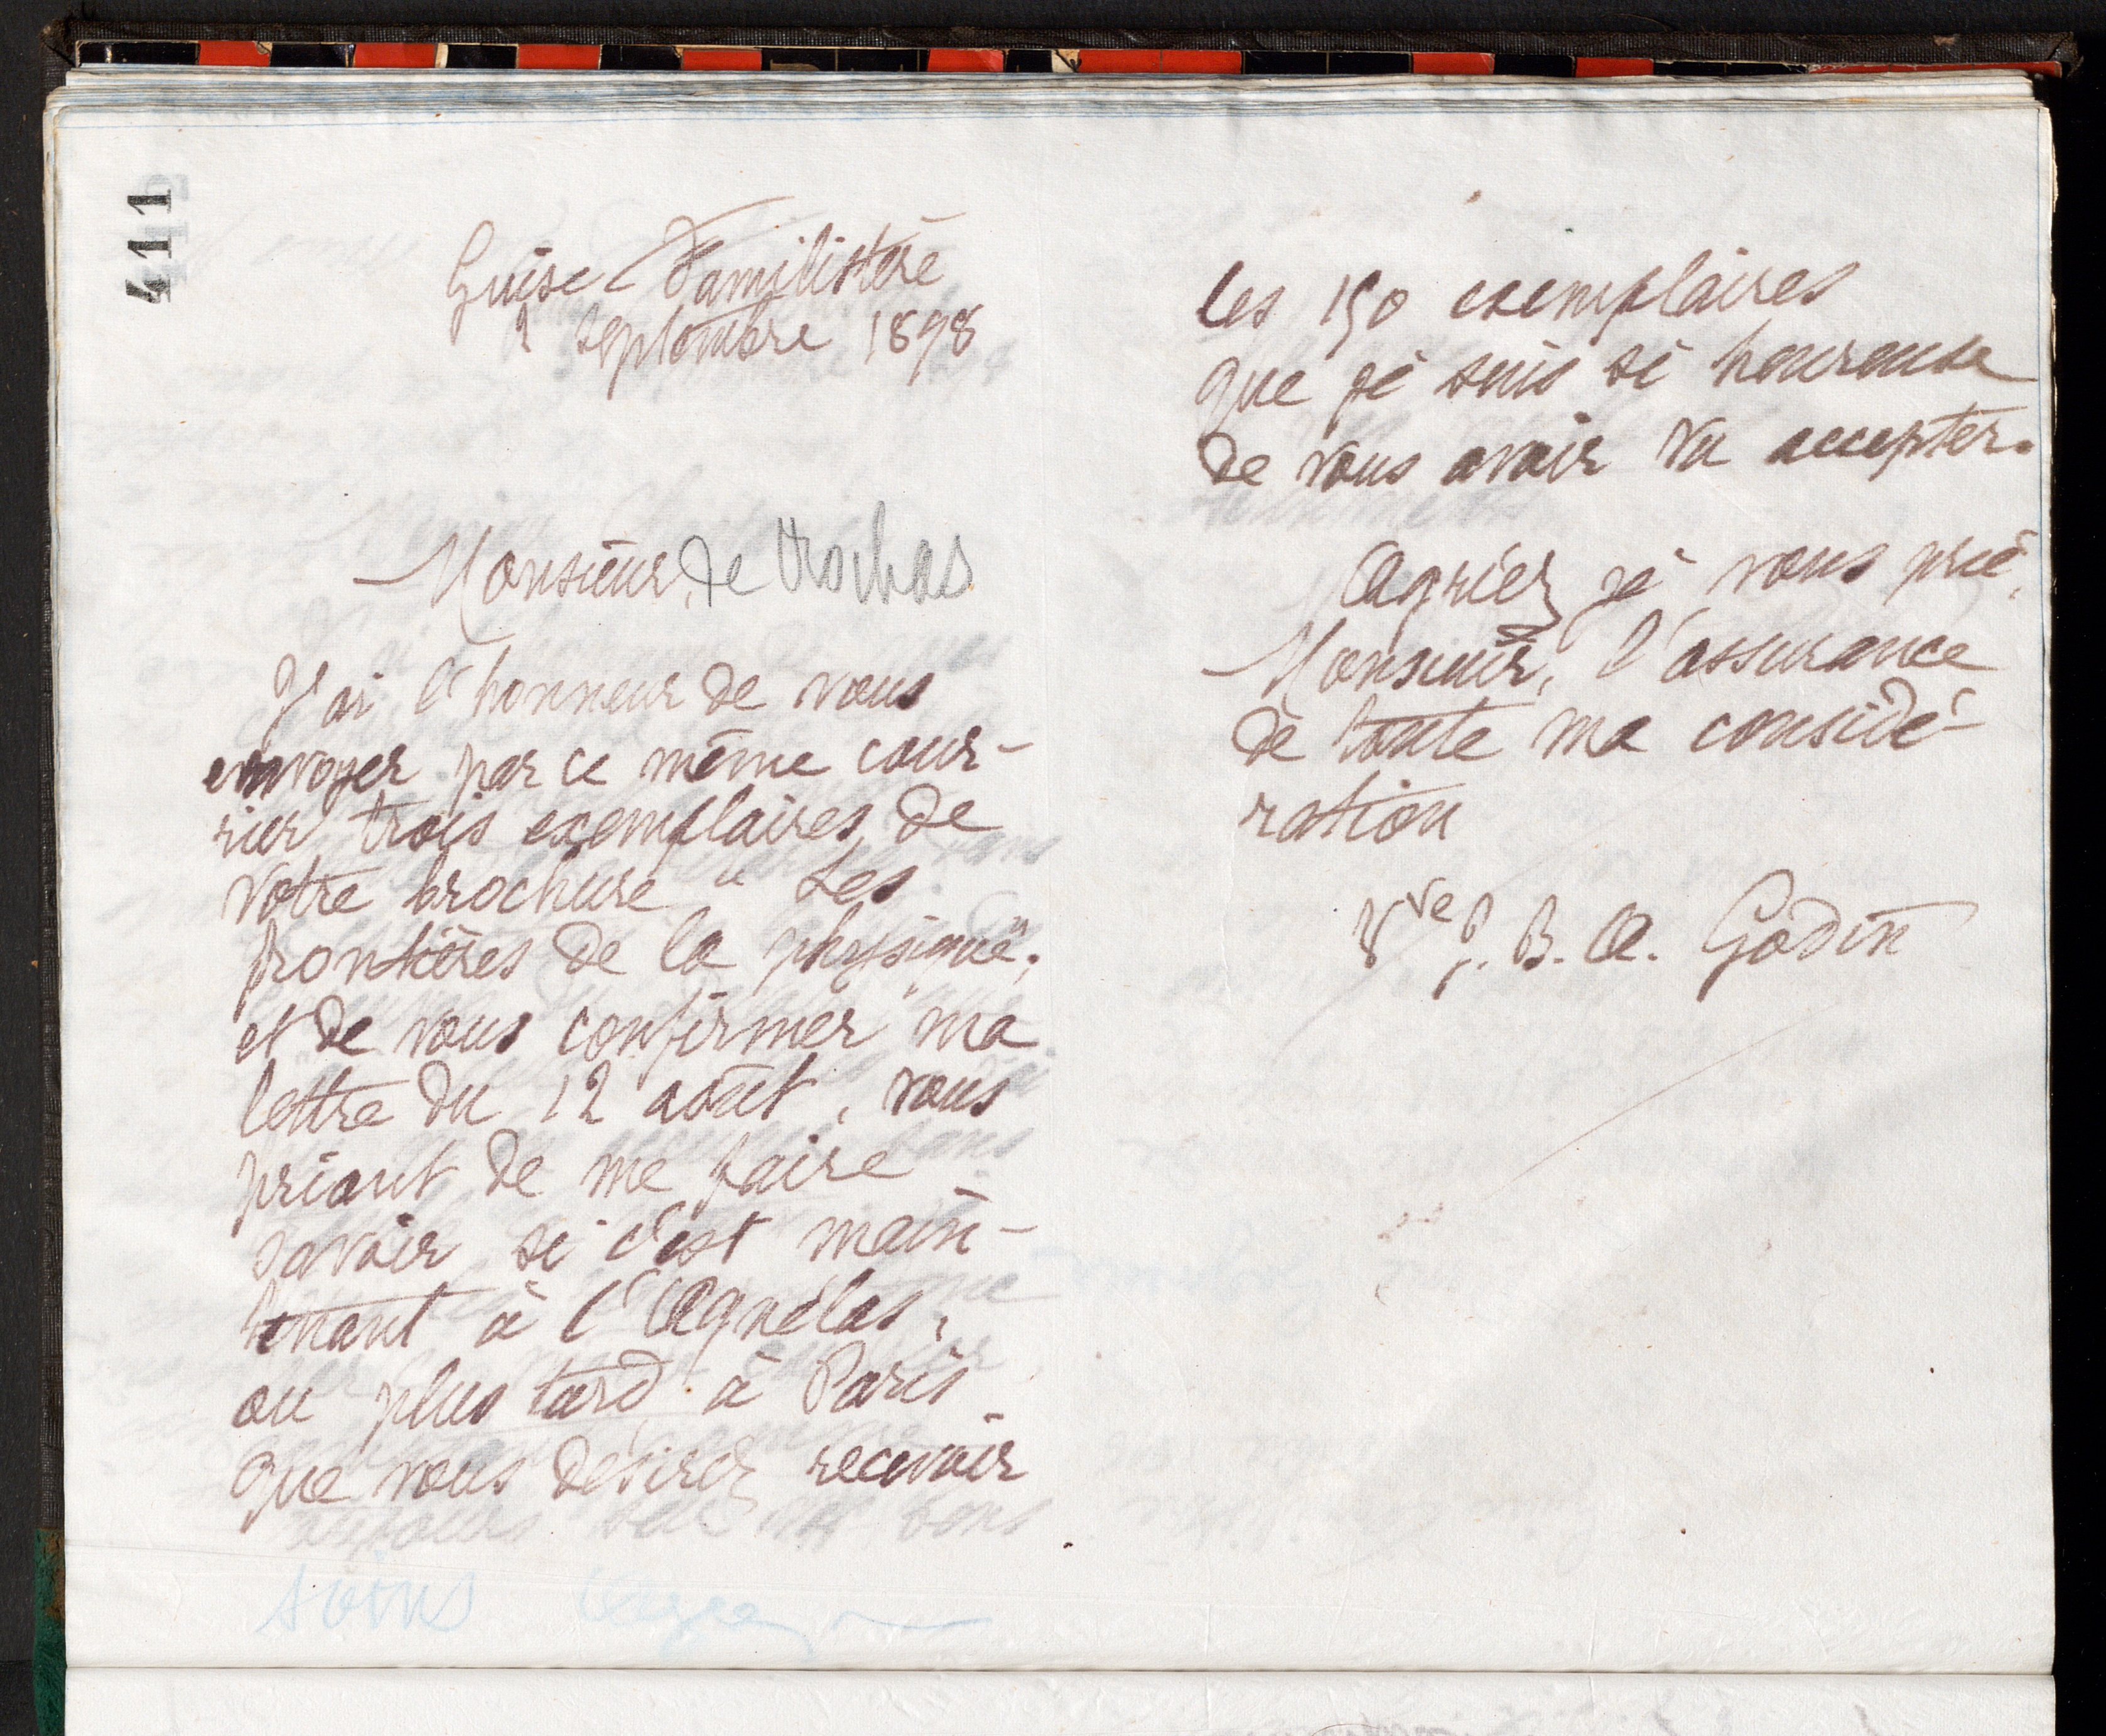 411
Guise Familistère
2 septembre 1898
Monsieur, de Rochas
J'ai l'honneur de vous
envoyer par ce même cour-
rier trois exemplaires de
votre brochure " Les
frontières de la physique"
et de vous confirmer ma
lettre du 12 août, vous
priant de me faire
savoir si c'est main-
tenant à l'Agnélas,
ou plus tard à Paris
que vous désirez recevoir
les 150 exemplaires
que je suis si heureuse
de vous avoir vu accepter.
Agréez je vous prie,
Monsieur, l'assurance
de toute ma considé-
ration
Vve J. B. A. Godin